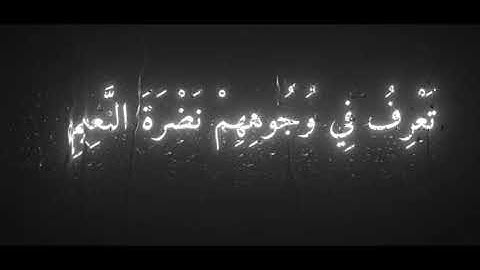 تَعْرِفُ فِي وُجُوهِهِمْ نَضْرَةَ النَّعِيمِ